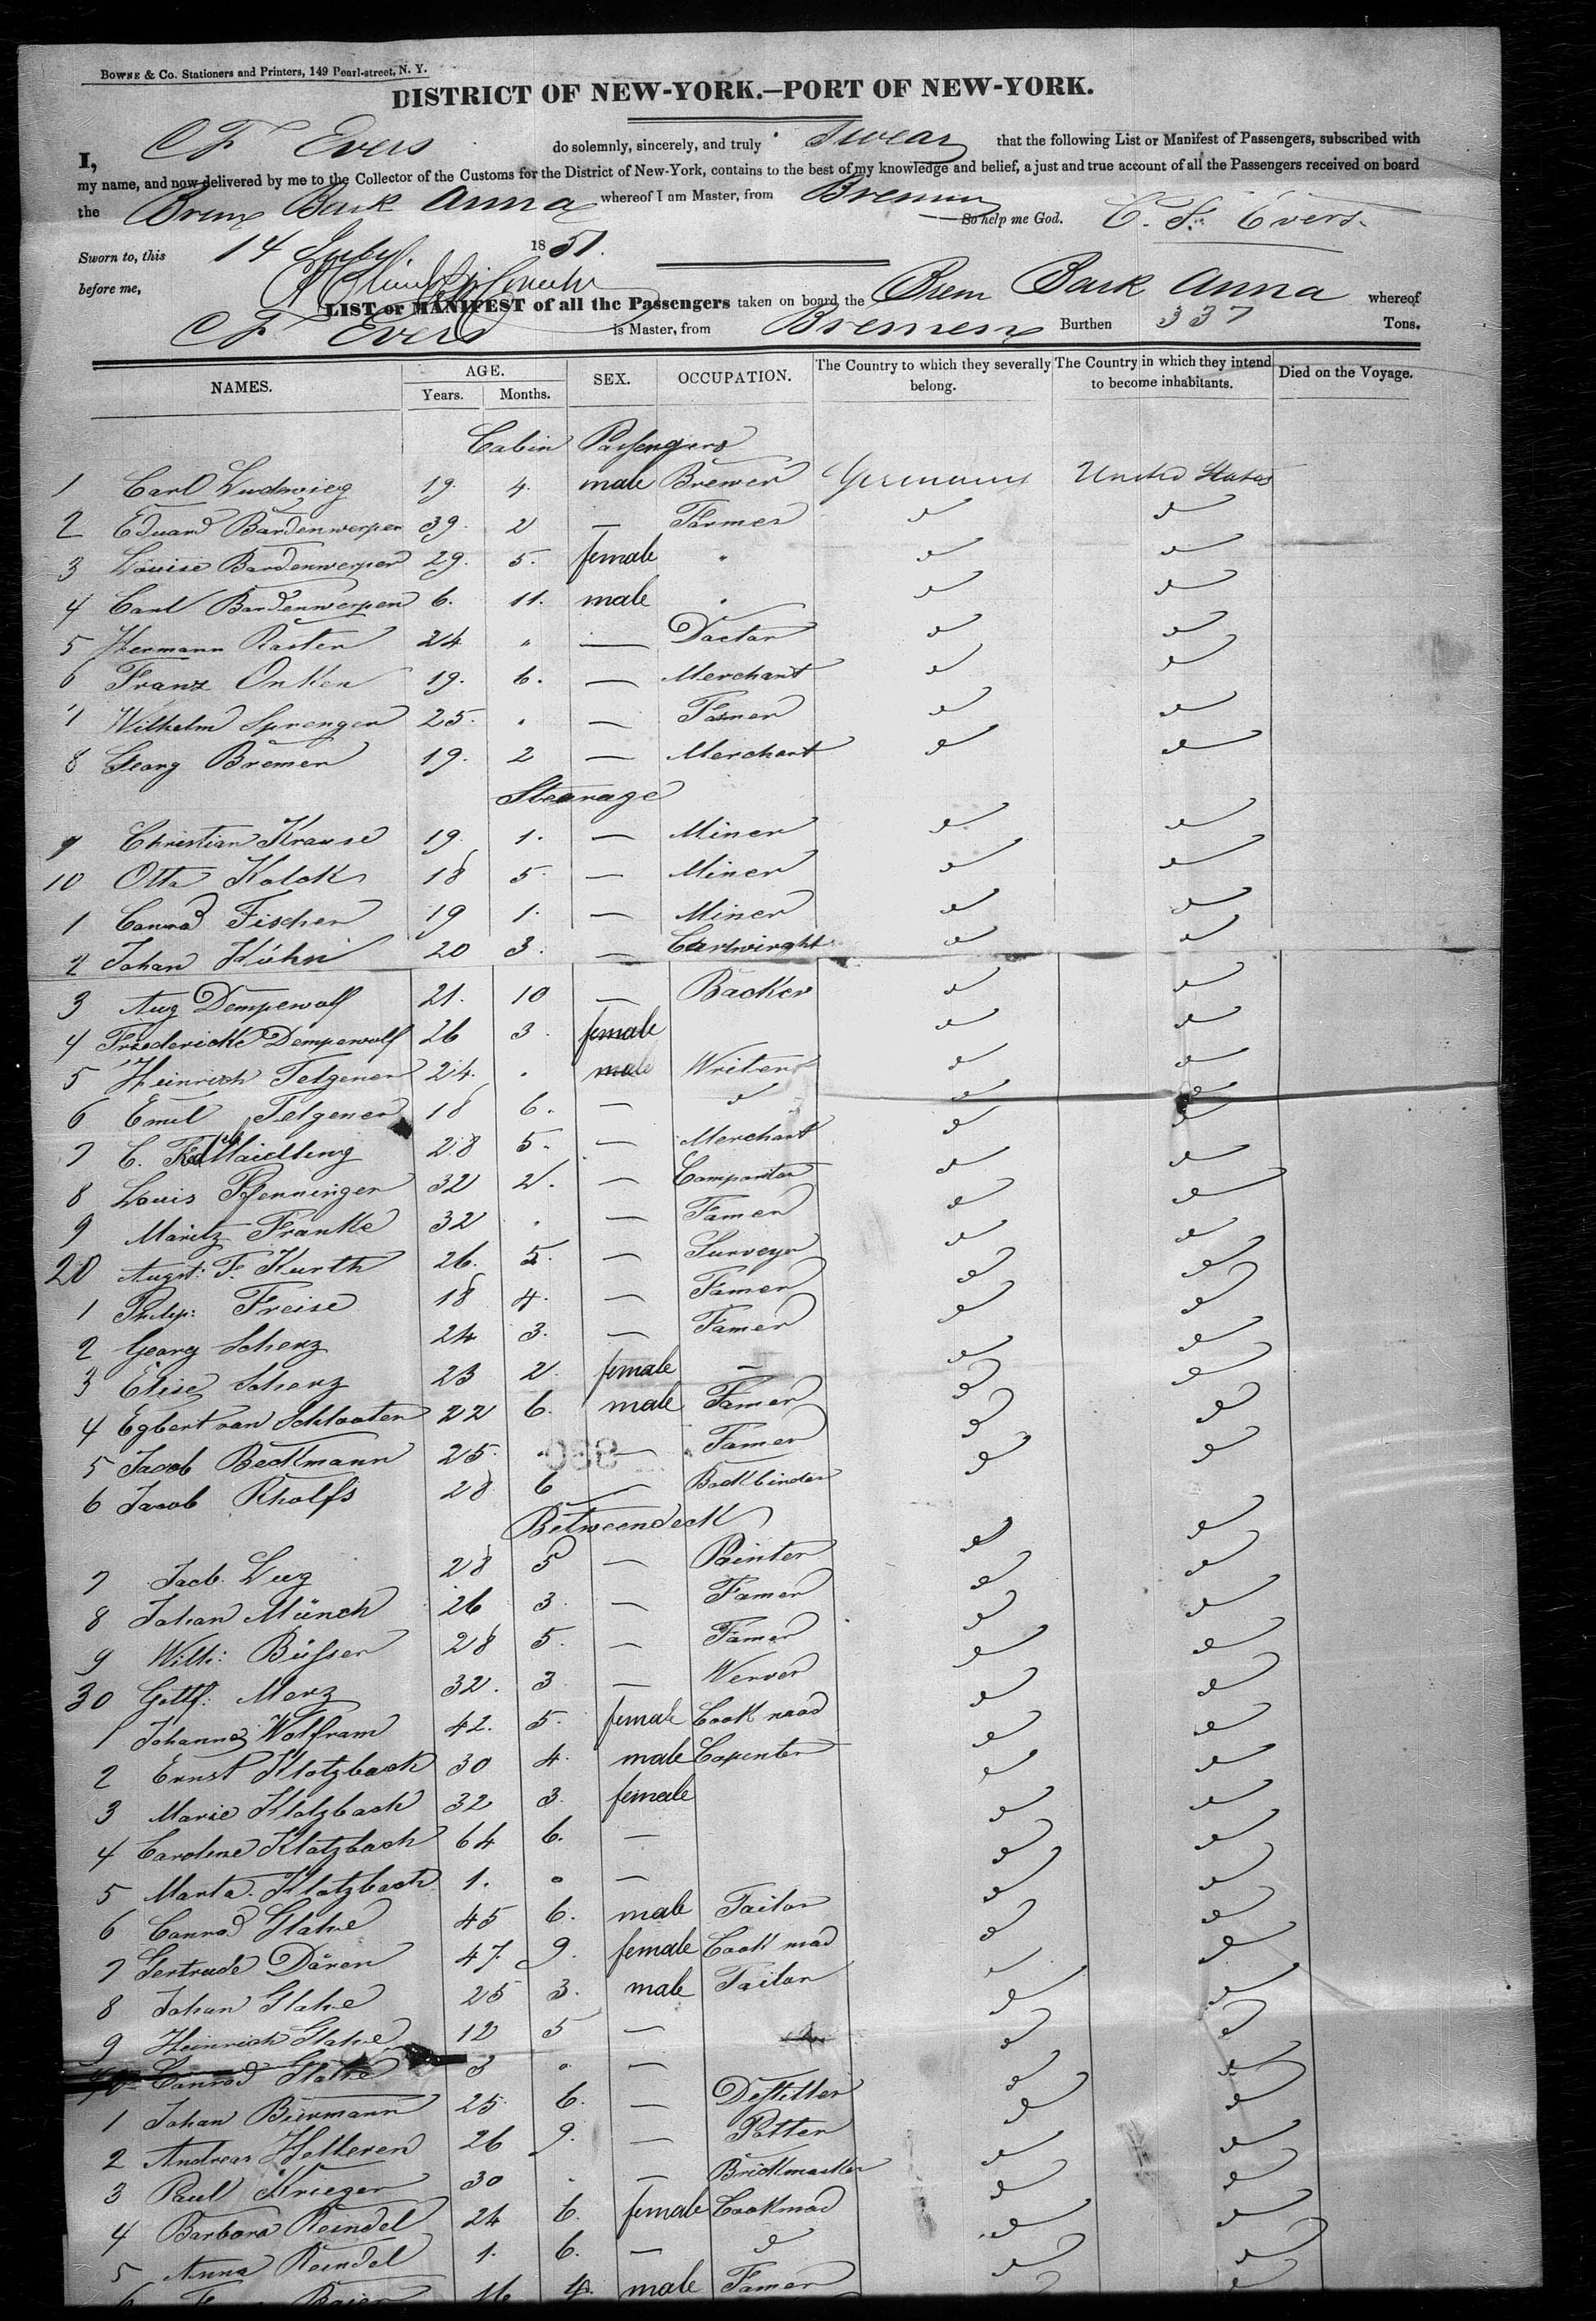 BOWNE & Co. Stationers and Printers, 149 Pearl-street, N. Y.
DISTRICT OF NEW-YORK.—PORT OF NEW-YORK.
I, C F Evers do solemnly, sincerely, and truly swear that the following List or Manifest of Passengers, subscribed with
my name, and now delivered by me to the Collector of the Customs for the District of New-York, contains to the best of my knowledge and belief, a just and true account of all the Passengers received on board
the Brem Bark Anna whereof I am Master, from Bremen
So help me God. C. F. Evers.
Sworn to, this 14 July 1851.
before me,
LIST or MANIFEST of all the Passengers taken on board the Brem Bark Anna whereof
C F Evers is Master, from Bremen Burthen 337 Tons.
NAMES. AGE. Years. Months. SEX. OCCUPATION. The Country to which they severally belong. The Country in which they intend to become inhabitants. Died on the Voyage.
Cabin Passengers
1 Carl Ludwieg 19. 4. male Brewer Germany United States
2 Eduard Bardenwerper 39. 2 — Farmer
3 Louise Bardenwerper 29. 5. female "
4 Carl Bardenwerper 6. 11. male
5 Hermann Raster 24 " — Doctor
6 Franz Onken 19. 6. — Merchant
7 Wilhelm Sprenger 25. — Famer
8 Georg Bremer 19. 2 — Merchant
Stearage
9 Christian Krause 19. 1. — Miner
10 Otto Kolck 18 5. — Miner
1 Conrad Fischer 19 1. — Miner
2 Johan Kühn 20 3. — Cartwirght
3 Aug Dempewolf 21. 10 — Backer
4 Friedericke Dempewolf 26 3. female
5 Heinrich Telgener 24. male Writer
6 Emil Telgener 18 6. —
7 C. Maidling 28 5. — Merchant
8 Louis Pfenninger 32 2. — Compositor
9 Moritz Franke 32 — Famer
20 Augst. F. Kurth 26. 5. — Surveyor
1 Philip: Freise 18 4. — Famer
2 Georg Scherz 24 3. — Famer
3 Elise Scherz 23 2. female —
4 Egbert van Schlooten 22 6. male Famer
5 Jacob Beckmann 25. — Famer
6 Jacob Rholfs 28 6 — Bockbinder
Betweendeck
7 Jacb. Lug 28 5 — Painter
8 Johan Münch 26 3. — Famer
9 Wilh: Büsser 28 5. — Famer
30 Gottf: Merz 32. 3 — Werver
1 Johanna Wolfram 42. 5. female Cook maad
2 Ernst Klotzbach 30 4. male Capenter
3 Marie Klotzbach 32 3. female
4 Carolene Klotzbach 64 6. —
5 Marta. Klotzbach 1. —
6 Conrad Glahe 45 6. male Tailor
7 Gertrude Dären 47. 9. female Cook mad
8 Johan Glahe 25 3. male Tailor
9 Heinrich Glahe 12 5 —
40 Conrad Glahe 3 —
1 Johan Biermann 25. 6. — Destiller
2 Andreas Helleren 26 9. — Potter
3 Paul Krieger 30 — Brickmacker
4 Barbara Reindel 24 6. female Cookmad
5 Anna Reindel 1. 6. —
6 Baier 16 4. male Famer